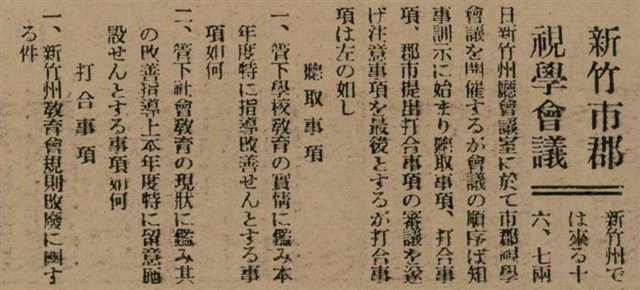 新竹市郡
視學會議
新竹州で
は來る十
六、七兩
日新竹州廳會議室に於て市郡視學
會議を開催するが會議の順序ば知
事訓示に始まり聽取事項、打合事
項、郡市提出打合事項の審議を遂
げ注意事項を最後とするが打合事
項は左の如し
聽取事項
一、管下學校敎育の實情に鑑み本
年度特に指導改善せんとする事
項如何
二、管下社會敎育の現狀に鑑み其
の改善指導上本年度特に留意施
設せんとする事項如何
打合事項
一、新竹州敎育會規則改廢に關す
る件